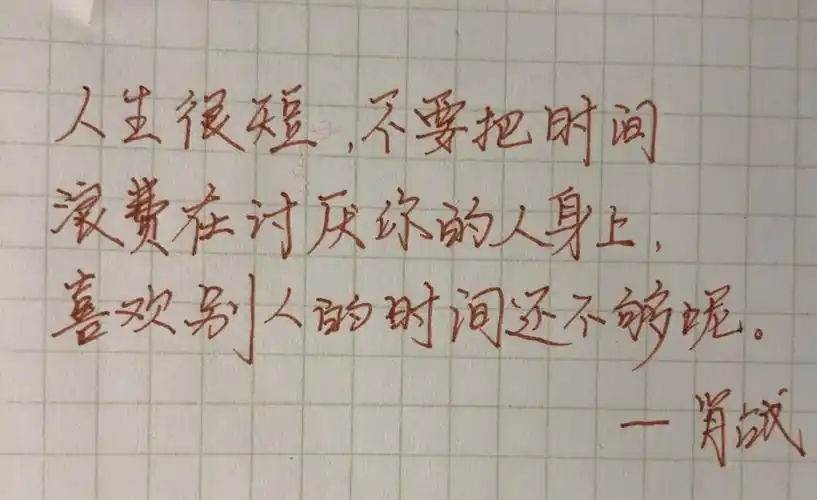 人生很短,不要把时间
浪费在讨厌你的人身上,
喜欢别人的时间还不够呢。
—肖战